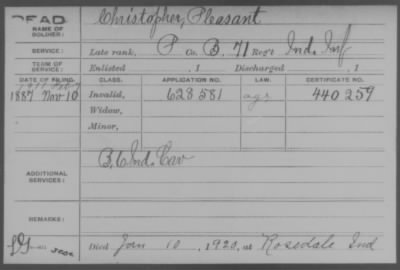 DEAD
Christopher, Pleasant
NAME OF SOLDIER:
SERVICE: Late rank, P Co. B, 71 Reg't Ind. Inf
TERM OF SERVICE: Enlisted , 1 Discharged , 1
DATE OF FILING. CLASS. APPLICATION NO. LAW. CERTIFICATE NO.
1887 Nov 10 Invalid, 628 581 age 440 259
Widow,
Minor,
B, 6 Ind. Cav
ADDITIONAL SERVICES:
REMARKS:
Died Jan 10, 1920, at Rosedale Ind